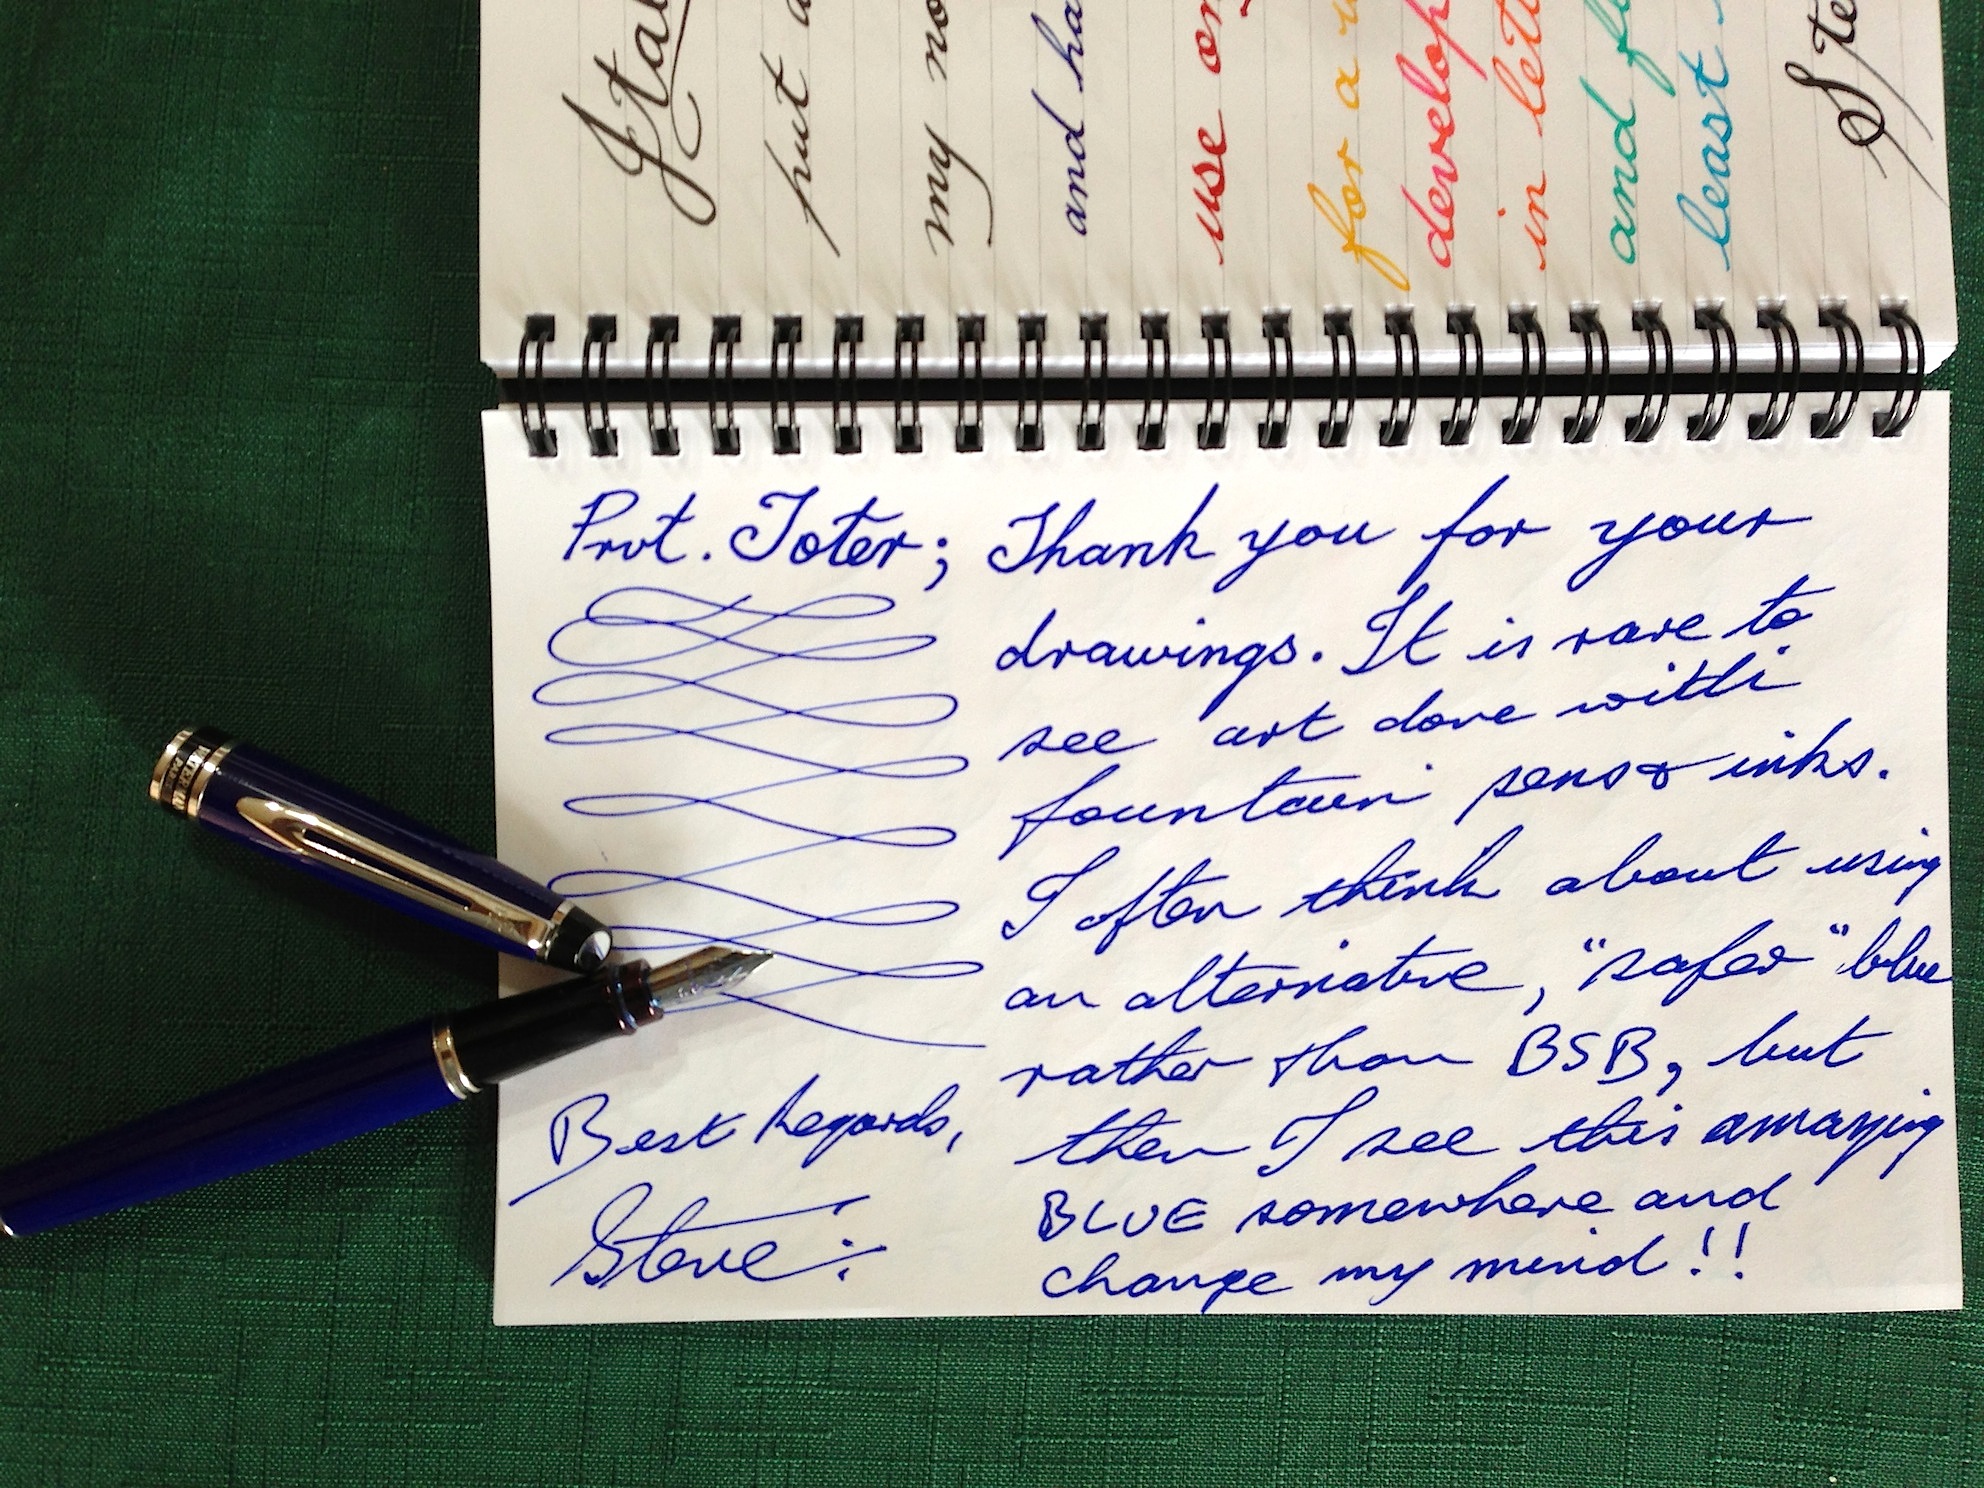 Ital
put a
my no
and ha
use on
for a
develop
in lett
and f
least
Ste
Prvt. Toter; Thank you for your
drawings. It is rare to
see art done with
fountain pens & inks.
I often think about using
an alternative, "safer" blue
rather than BSB, but
then I see this amazing
BLUE somewhere and
change my mind!!
Best Regards,
Steve
WATERMAN